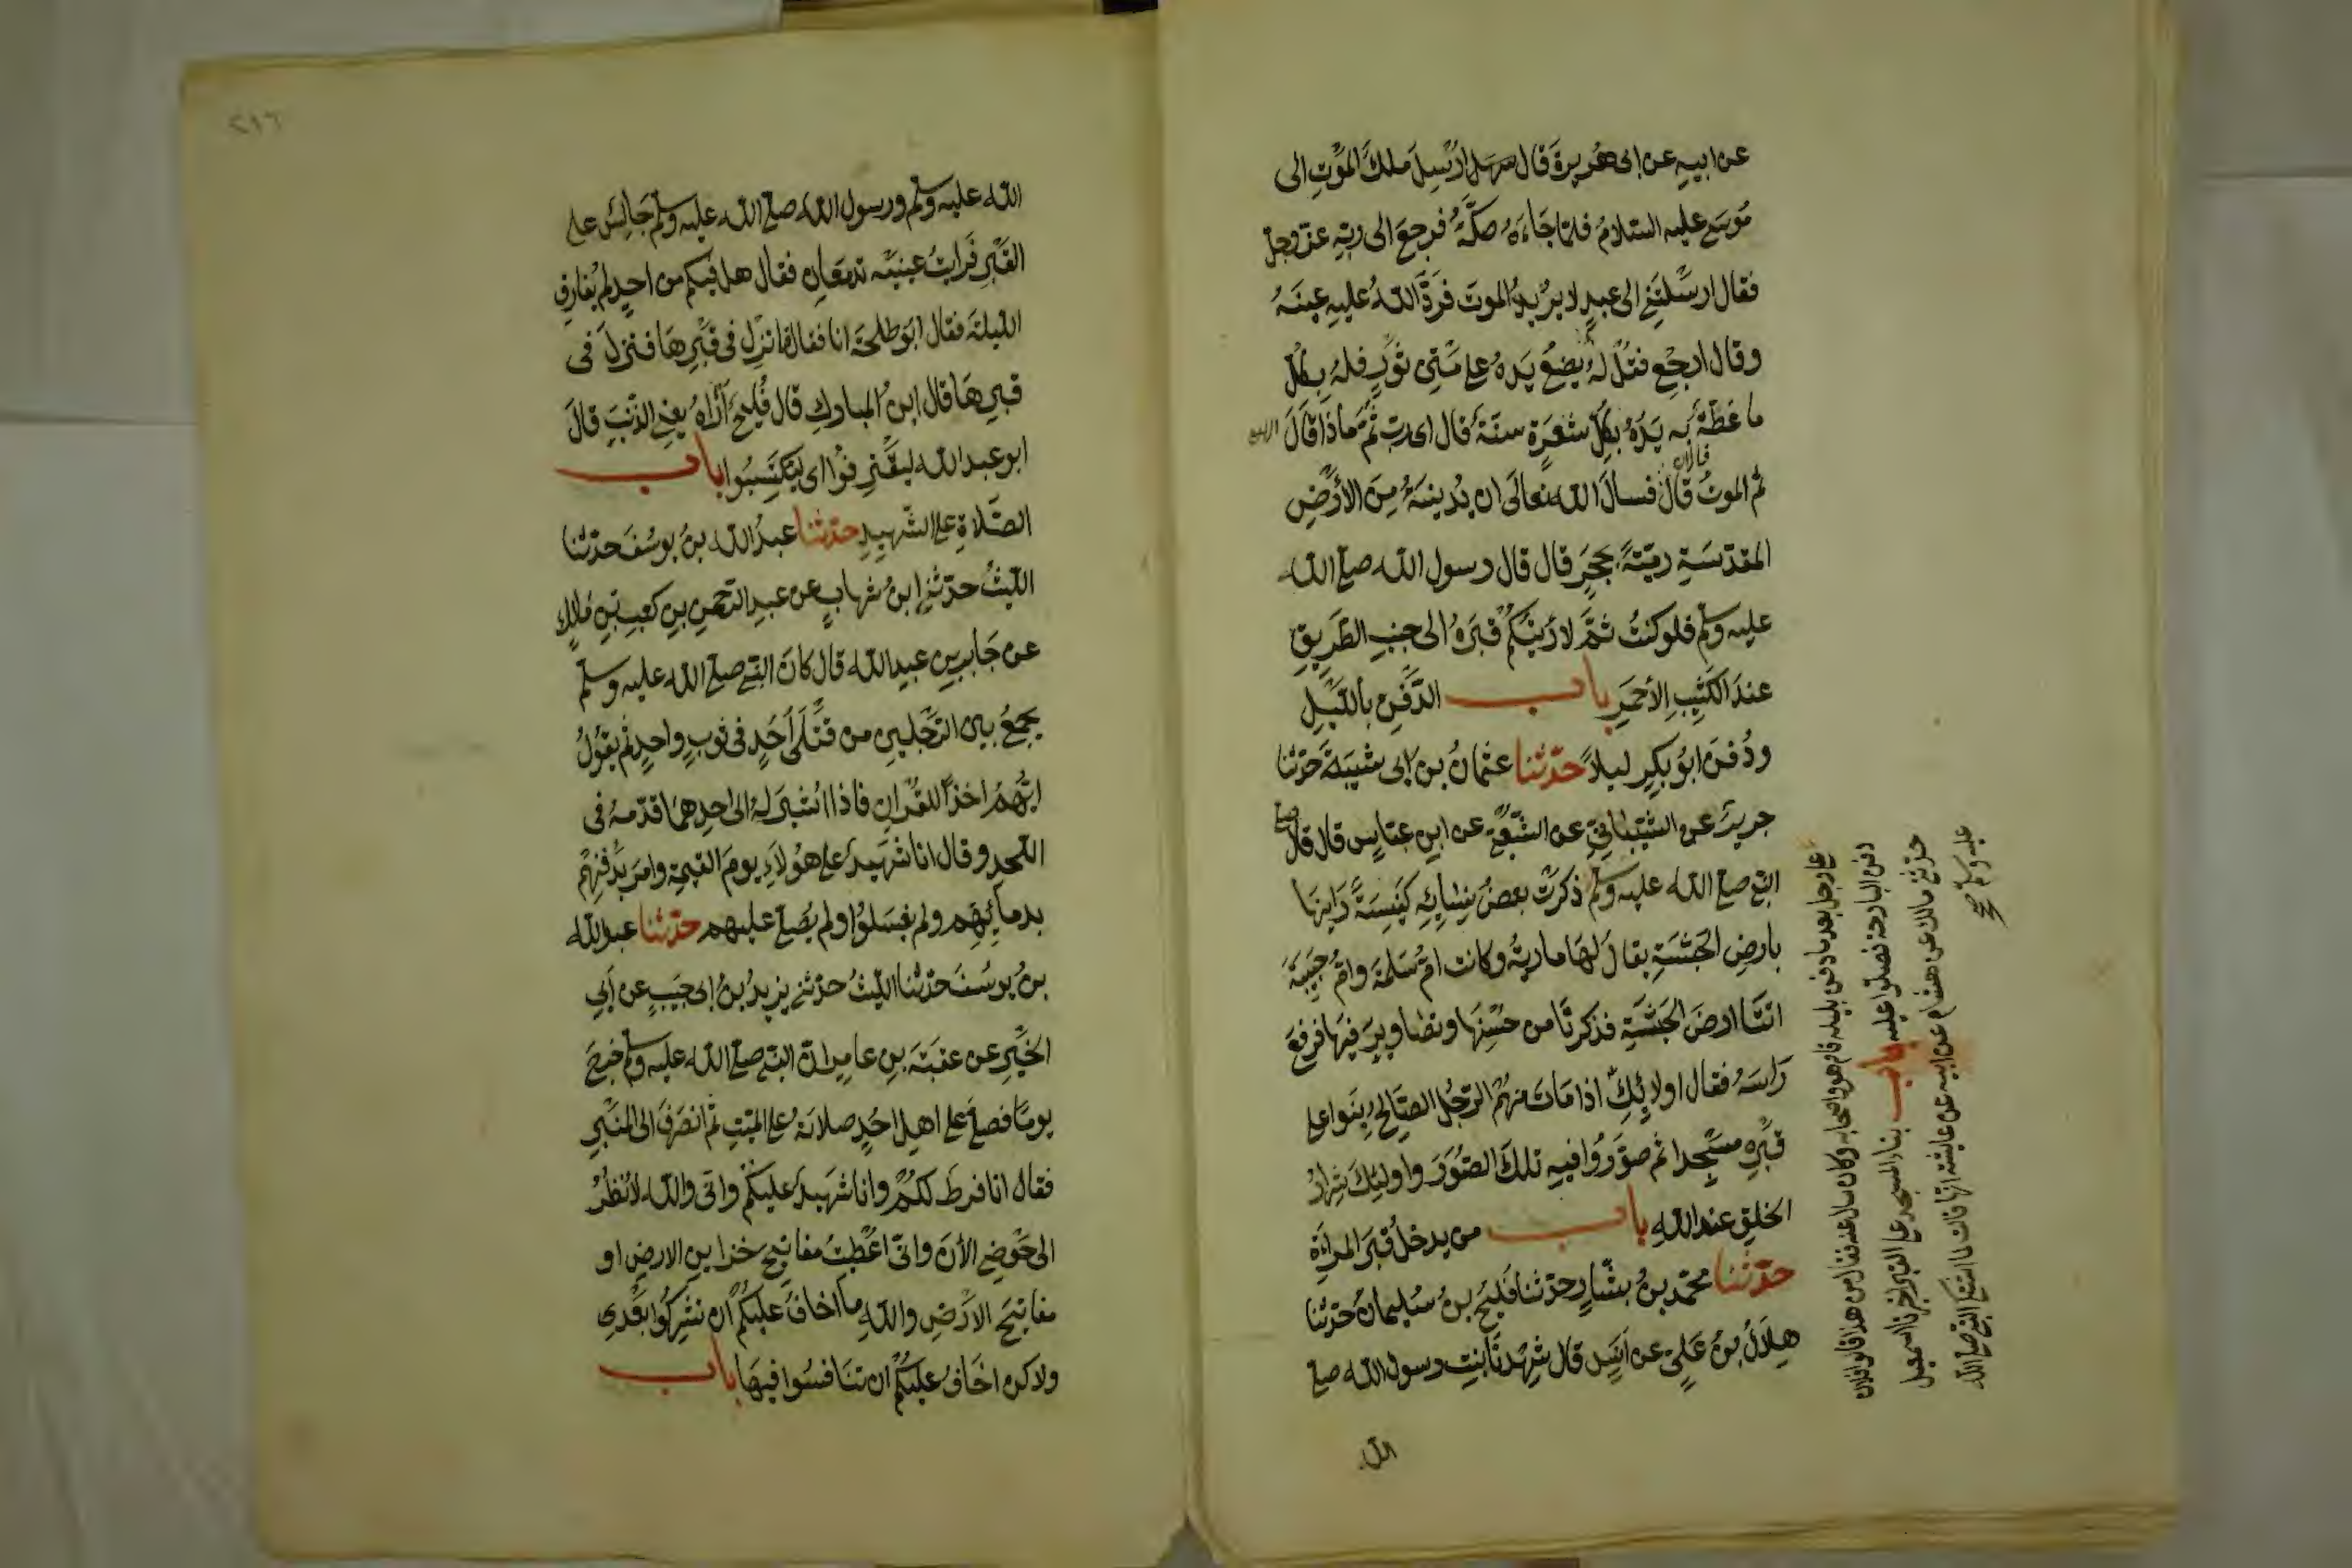 عن ابيه عن ابى هريرة قال ارسل ملك الموت الى
موسى عليه السلام فلما جاءه صكه فرجع الى ربه عز وجل
فقال ارسلتنى الى عبد لا يريد الموت فرد الله عليه عينه
وقال ارجع فقل له يضع يده على متن ثور فله بكل
ما غطت به يده بكل شعرة سنة قال اى رب ثم ماذا قال
ثم الموت قال فسال الله تعالى ان يدنيه من الأرض
قال فالان
المقدسة رمية بحجر قال قال رسول الله صلى الله
عليه وسلم فلو كنت ثم لاريتكم قبره الى جنب الطريق
عند الكثيب الأحمر باب الدفن بالليل
ودفن ابو بكر ليلا حدثنا عثمان بن ابى شيبة حدثنا
جرير عن الشيبانى عن الشعبى عن ابن عباس قال قال
النبى صلى الله عليه وسلم ذكرت بعض نسائه كنيسة راينها
بارض الحبشة يقال لها مارية وكانت ام سلمة وام حبيبة
اتتا ارض الحبشة فذكرتا من حسنها وتصاوير فيها فرفع
راسه فقال اولائك اذا مات منهم الرجل الصالح بنوا على
قبره مسجدا ثم صوروا فيه تلك الصور واولئك شرار
الخلق عند الله باب من يدخل قبر المراة
حدثنا محمد بن بشار حدثنا فليح بن سليمان حدثنا
هلال بن على عن انس قال شهدنا بنت رسول الله صلى
الله
صلى
على رجل بعد ما دفن بليلة قام هو واصحابه وكان سال عنه فقال من هذا قالوا فلان
دفن البارحة فصلوا عليه باب بناء المسجد على القبر اخبرنا اسمعيل
حدثنى مالك عن هشام عن ابيه عن عايشة انها قالت لما اشتكى النبى صلى الله
عليه وسلم صح
٢١٦
الله عليه وسلم ورسول الله صلى الله عليه وسلم جالس على
القبر فرايت عينيه تدمعان فقال هل فيكم من احد لم يقارف
الليلة فقال ابو طلحة انا فقال فانزل فى قبرها فنزل فى
قبرها قال ابن المبارك قال فليح أراه يعنى الذنب قال
ابو عبد الله ليقترفوا اى ليكتسبوا باب
الصلاة على الشهيد حدثنا عبد الله بن يوسف حدثنا
الليث حدثنى ابن شهاب عن عبد الرحمن بن كعب بن مالك
عن جابر بن عبد الله قال كان النبى صلى الله عليه وسلم
يجمع بين الرجلين من قتلى أحد فى ثوب واحد ثم يقول
ايهم اخذا للقران فاذا اشير له الى احدهما قدمه فى
اللحد وقال انا شهيد على هؤلاء يوم القيمة وامر بدفنهم
بدمائهم ولم يغسلوا ولم يصل عليهم حدثنا عبد الله
بن يوسف حدثنا الليث حدثنى يزيد بن ابى حبيب عن أبى
الخير عن عقبة بن عامر ان النبى صلى الله عليه وسلم خرج
يوما فصلى على اهل احد صلاته على الميت ثم انصرف الى المنبر
فقال انا فرط لكم وانا شهيد عليكم وانى والله لأنظر
الى حوضى الأن وانى اعطيت مفاتيح خزاين الارض او
مفاتيح الارض والله ما اخاف عليكم ان تشركوا بعدى
ولاكن اخاف عليكم ان تنافسوا فيها باب